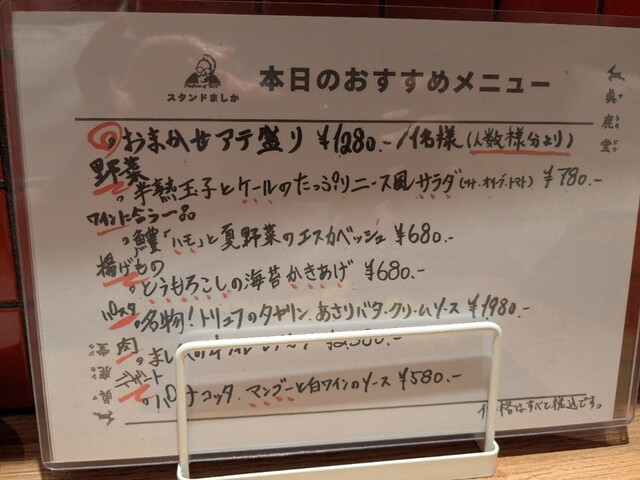 スタンドましか
本日のおすすめメニュー
おまかせアテ盛り ¥1280.- /1名様(人数様分より)
野菜
半熟玉子とケールのたっぷりニース風サラダ(ツナ・オリーブ・トマト) ¥780.-
ワインに合う一品
鱧「ハモ」と夏野菜のエスカベッシュ ¥680.-
揚げもの
とうもろこしの海苔かきあげ ¥680.-
パスタ
名物!トリュフのタヤリン. あさりバタークリームソース ¥1980.-
肉
デザート
パンナコッタ. マンゴーと白ワインのソース ¥580.-
価格はすべて税込です。